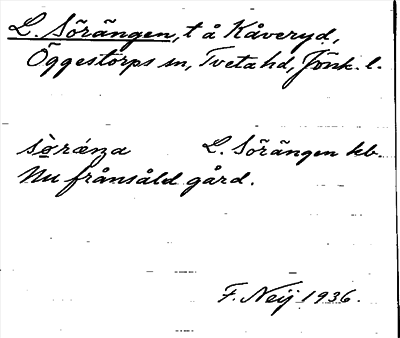 L. Sörängen, t å Kåveryd,
Öggestorps sn, Tveta hd, Jönk. l.
L. Sörängen kb.
Nu frånsåld gård.
F. Neij 1936.